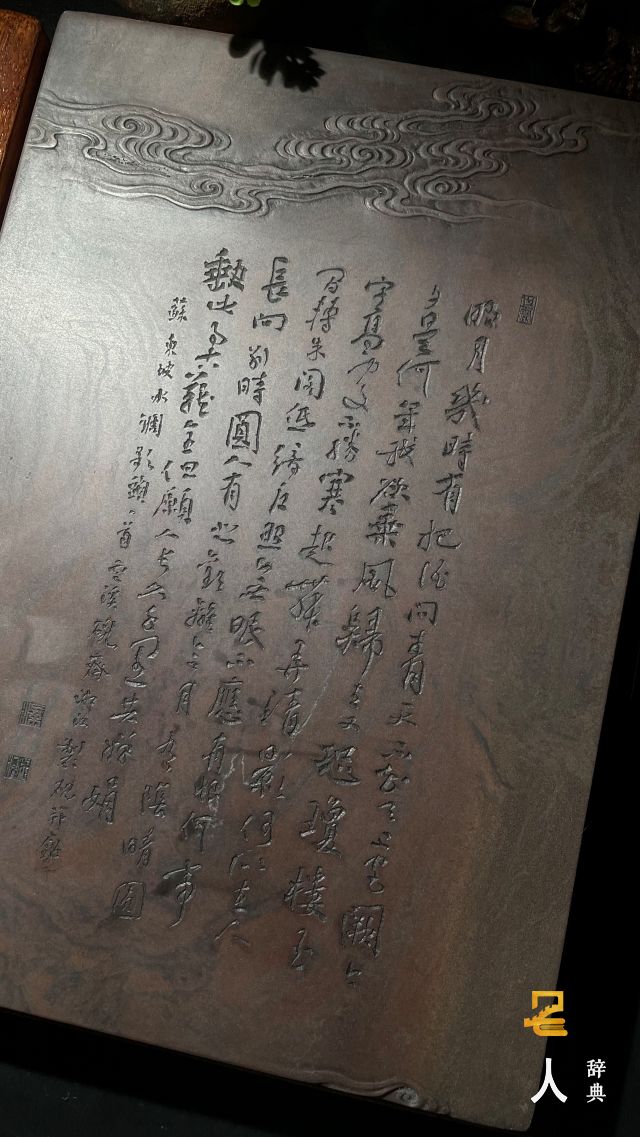 明月幾時有把酒問青天不知天上宮闕今
夕是何年我欲乘風歸去又恐瓊樓玉
宇高處不勝寒起舞弄清影何似在人
間轉朱閣低綺户照無眠不應有恨何事
長向別時圓人有悲歡離合月有陰晴圓
缺此事古難全但願人長久千里共嬋娟
蘇東坡水調歌頭一首雲溪硯齋製硯并銘
人
辞典